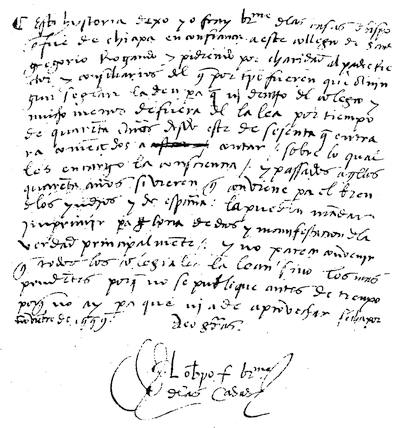 Esta historia dexo yo fray brme delas casas obispo
q fue de chiapa en confiança a este collegio de sant
gregorio Rogando y pidiendo por charidad al padre Rec
tor y consiliarios del q por tpo fueren q a nin
gun seglar la den pa q ni dentro del colegio y
mucho menos de fuera del la lea por tiempo
de quareta años desde este de sesenta q entra
ra començados a contar / sobre lo qual
les encargo la consciencia / y passados aqllos
quareta años si vieren q conviene pa el bien
delos yndios y de españa / la pueden mandar
Imprimir pa gloria de dios y manifestacion dla
verdad principalmente / y no parece convenir
q todos los colegiales la lean sino los mas
prudentes porq no se publique antes de tiempo
porq no ay pa que ni a de aprovechar fecha por
noviebre de 1559. Deo grãs.
El obpo f brme
delas Casas